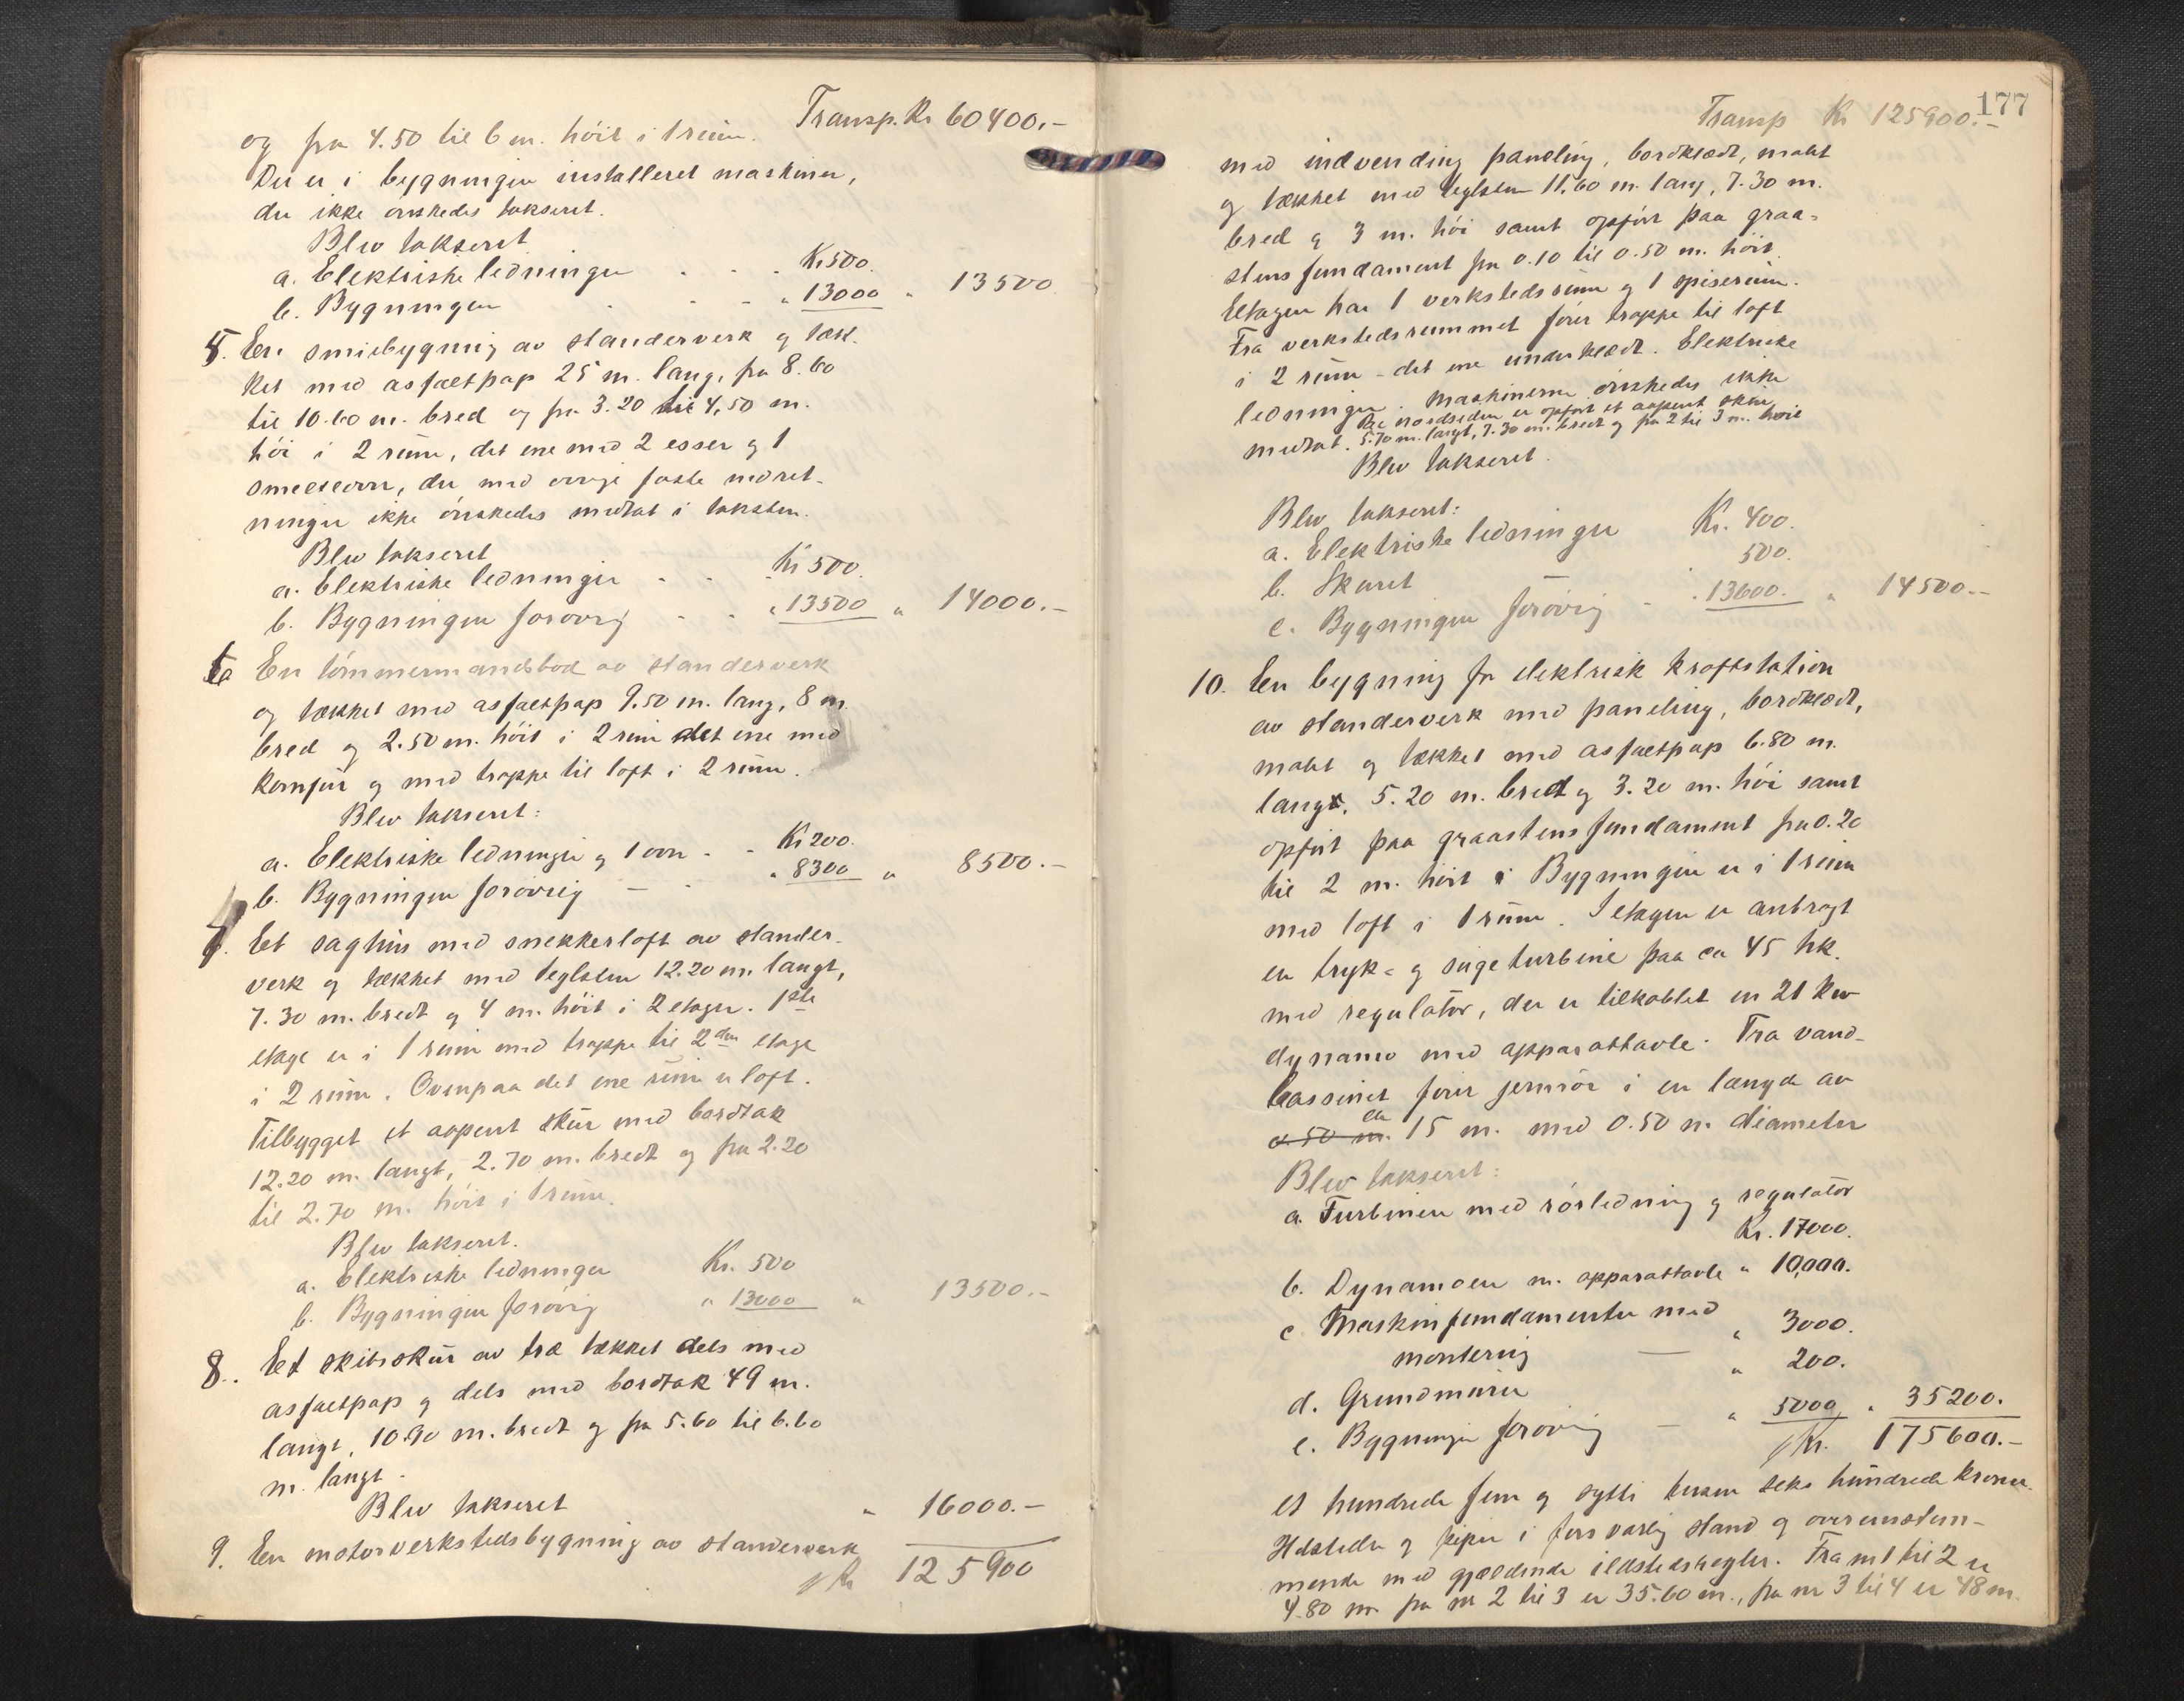 Transp. Kr 60400.-
og fra 4.50 til 6 m. høit i 1 rum.
Der er i bygningen installeret maskiner,
der ikke ønskedes takseret.
Blev takseret
a. Elektriske ledninger . . . Kr 500.
b. Bygningen . . . " 13000 " 13500
5. En smiebygning av standerverk og tæk-
ket med asfaltpap 25 m. lang, fra 8.60
til 10.60 m. bred og fra 3.20 til 4,50 m.
høi i 2 rum, det ene med 2 esser og 1
smelteovn, der med øvrige faste indret-
ninger ikke ønskedes medtat i taksten.
Blev takseret
a. Elektriske ledninger . . . Kr 500.
b. Bygningen forøvrig . . " 13500 " 14000.-
6. En tømmermandsbod av standerverk
og tækket med asfaltpap 9.50 m. lang, 8 m.
bred og 2.50 m. høit i 2 rum det ene med
komfur og med trappe til loft i 2 rum.
Blev takseret:
a. Elektriske ledninger og 1 ovn . . Kr 200.
b. Bygningen forøvrig — . " 8300 " 8500.-
7. Et saghus med snekkerloft av stander-
verk og tækket med teglsten 12.20 m. langt,
7.30 m. bredt og 4 m. høit i 2 etager. 1ste
etage er i 1 rum med trappe til 2den etage
i 2 rum. Ovenpaa det ene rum er loft.
Tilbygget et aapent skur med bordtak
12.20 m. langt, 2.70 m. bredt og fra 2.20
til 2.70 m. høit i 1 rum.
Blev takseret.
a. Elektriske ledninger Kr. 500
b. Bygningen forøvrig " 13000 " 13500.-
8. Et skibsskur av træ tækket dels med
asfaltpap og dels med bordtak 49 m.
langt, 10.90 m. bredt og fra 5.60 til 6.60
m. langt.
Blev takseret " 16000.-
9. En motorverkstedsbygning av standerverk
Kr 125900
177
Transp Kr 125900.-
med indvendig paneling, bordklædt, malt
og tækket med teglsten 11.60 m. lang, 7.30 m.
bred og 3 m. høi samt opført paa graa-
stens fundament fra 0.10 til 0.50 m. høit.
Etagen har 1 verkstedsrum og 1 spiserum.
Fra verkstedsrummet fører trappe til loft
i 2 rum - det ene underklædt. Elektriske
ledninger. Maskinerne ønskedes ikke
Paa nordsiden er opført et aapent skur
medtat. 5.70 m. langt, 7.30 m. bredt og fra 2 til 3 m. høit
Blev takseret.
Blev takseret:
a. Elektriske ledninger Kr. 400.
b. Skuret 500.
c. Bygningen forøvrig - . 13600. " 14500.-
10. En bygning for elektrisk kraftstation
av standerverk med paneling, bordklædt,
malt og tækket med asfaltpap 6.80 m.
lang, 5.20 m. bred og 3.20 m. høi samt
opført paa graastens fundament fra 0.20
til 2 m. høit. Bygningen er i 1 rum
med loft i 1 rum. I etagen er anbragt
en tryk- og sugeturbine paa ca 45 hk.
med regulator, der er tilkoblet en 21 kw
dynamo med apparattavle. Fra vand-
bassinet fører jernrør i en længde av
ca 50 m. ca 15 m. med 0.50 m. diameter
Blev takseret:
a. Turbinen med rørledning og regulator
Kr. 17000.
b. Dynamoen m. apparattavle " 10,000.
c. Maskinfundamenter med
montering — " 3000.
d. Grundmuren " 200.
e. Bygningen forøvrig — " 5000 " 35200.
Kr. 175600.-
Et hundrede fem og sytti tusen seks hundrede kroner.
Ildsteder og piper i forsvarlig stand og overensstem-
mende med gjældende ildstedsregler. Fra nr 1 til 2 er
4.80 m fra nr 2 til 3 er 35.60 m., fra nr 3 til 4 er 48 m.